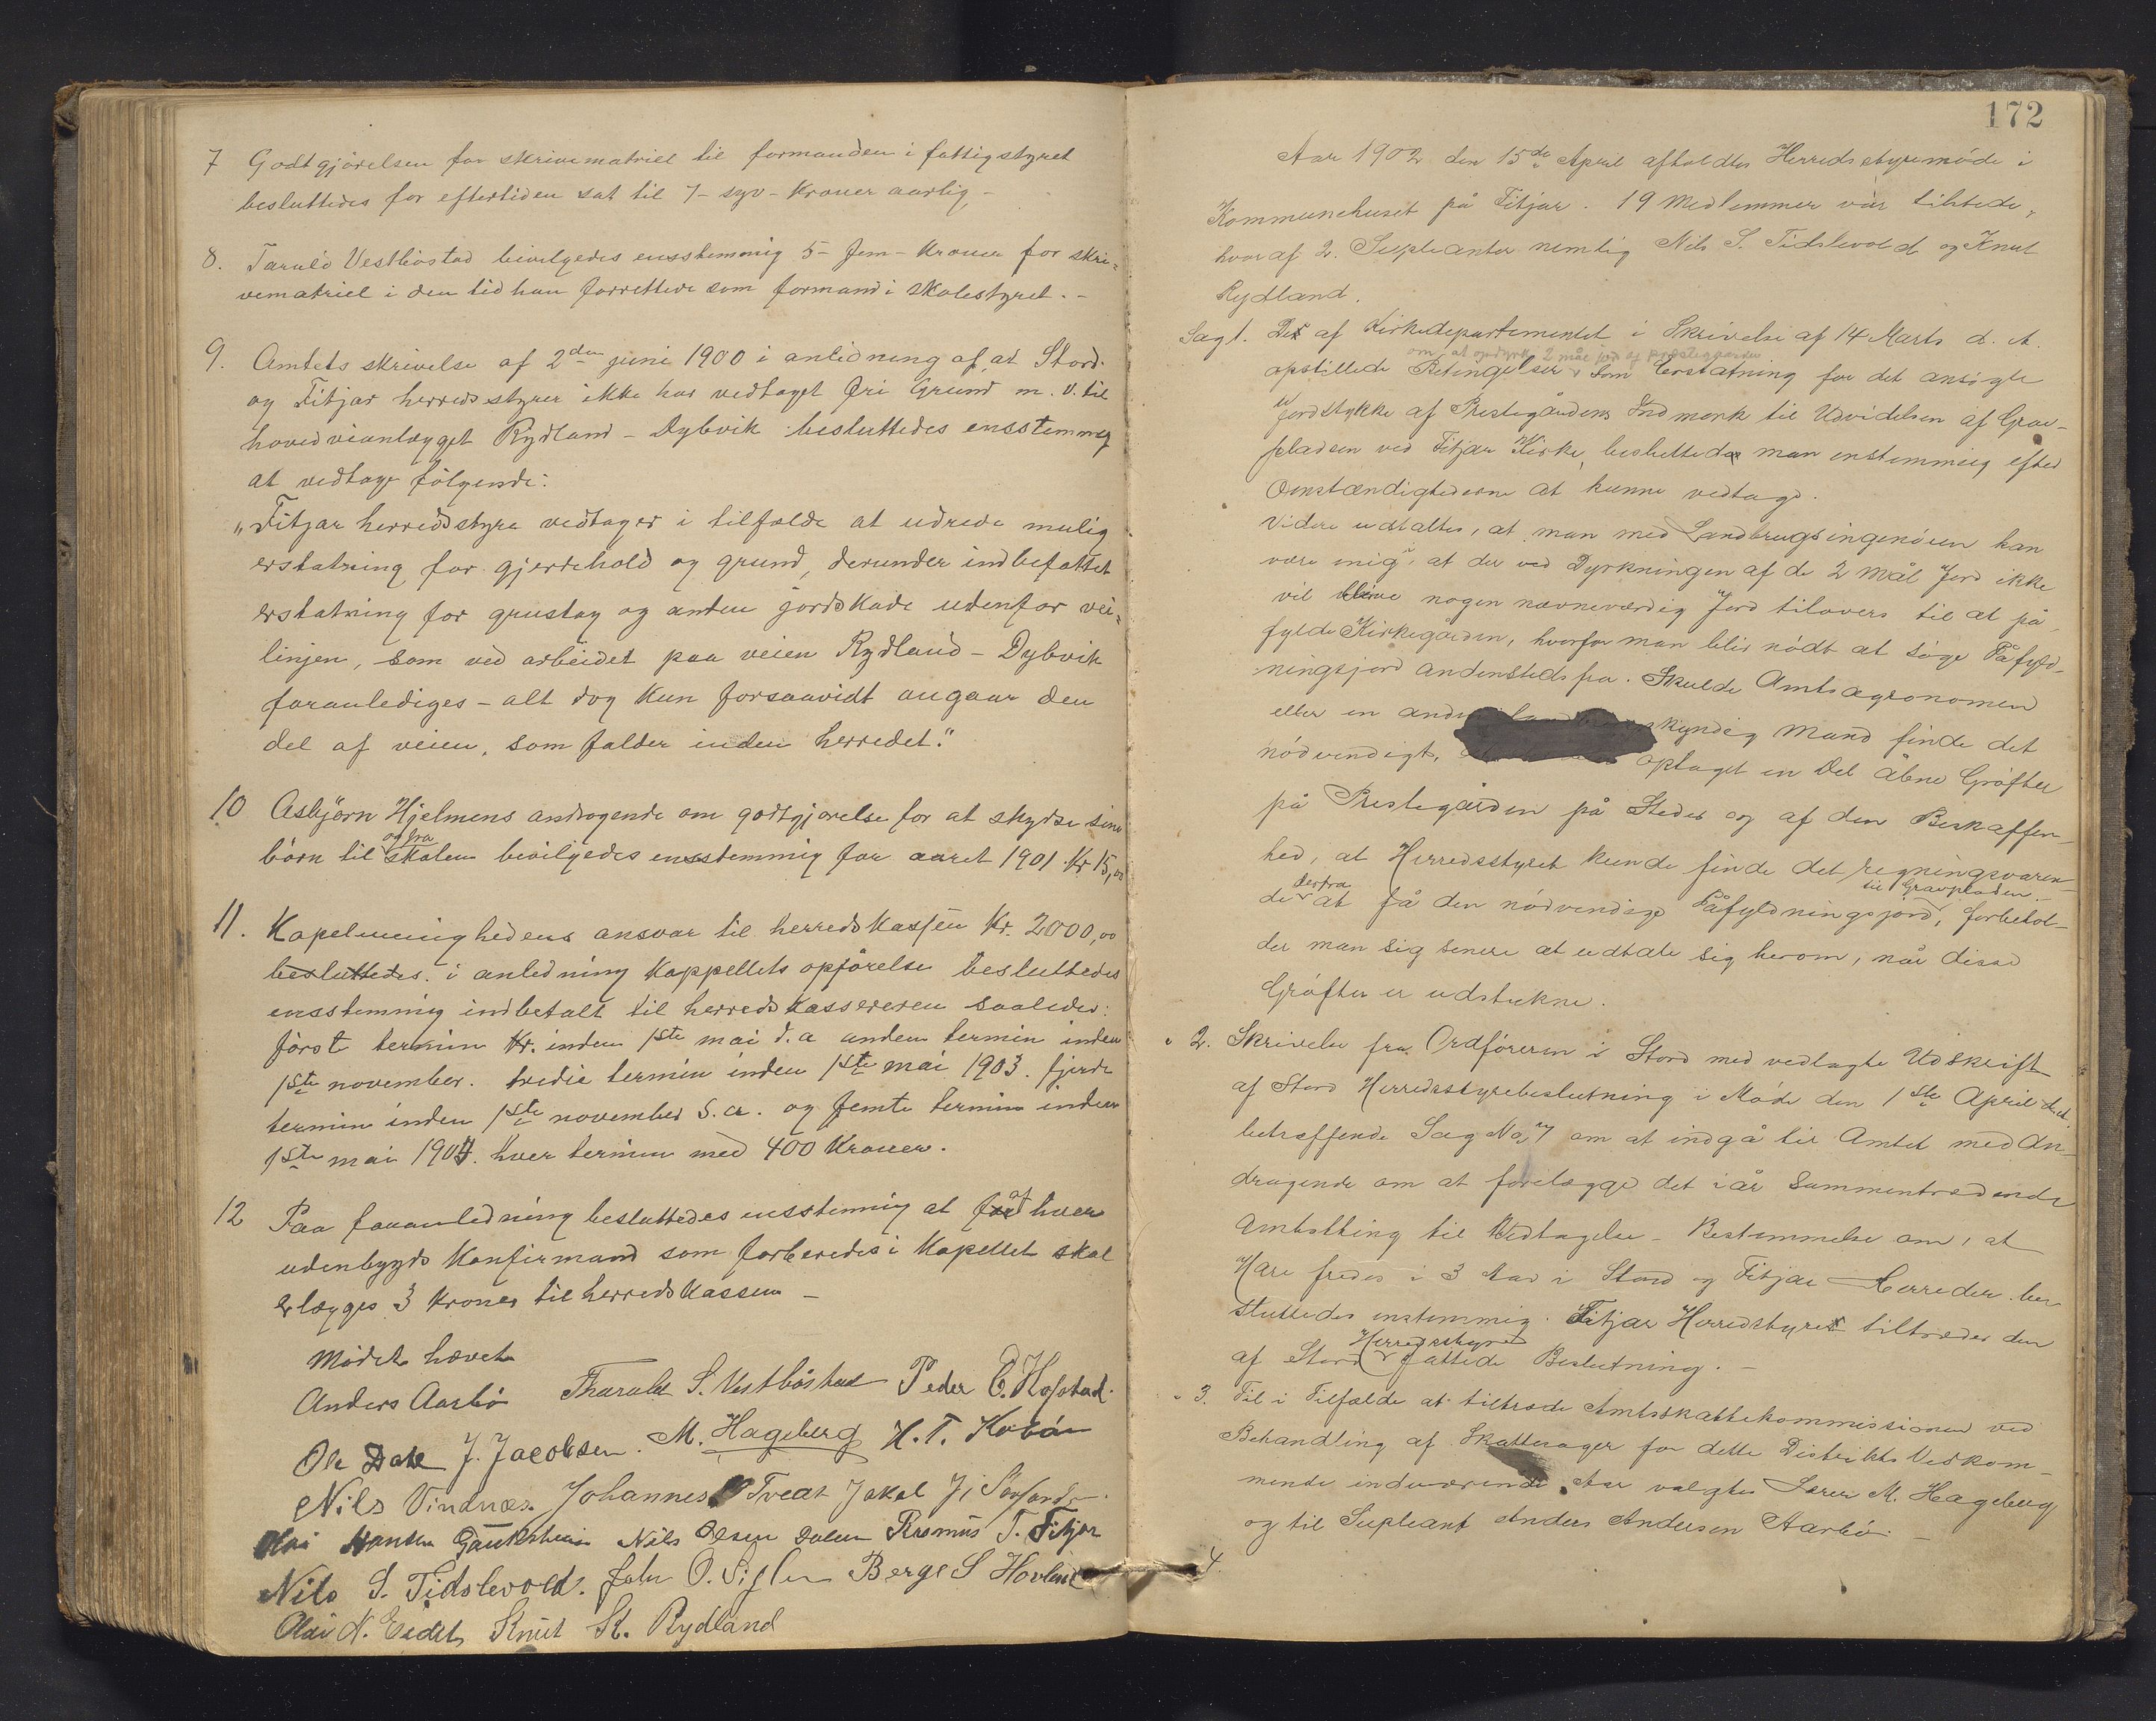 7 Godtgjörelsen for skrivematriel til formanden i fattigstyret
besluttedes for eftertiden sat til 7- syv - Kroner aarlig,-
8. Taruld Vestböstad bevilgedes ensstemmig 5- fem - Kroner for skri=
vematriel i den tid han forrettede som formand i skolestyret.-
9. Amtets skrivelse af 2den juni 1900 i anledning af at Stord
og Fitjar herredsstyrer ikke har vedtaget fri Grund m. v. til
hovedveianlægget Rydland - Dybvik besluttedes ensstemmig
at vedtage fölgende:
"Fitjar herredsstyre vedtager i tilfælde at udrede mulig
erstatning for gjerdehold og grund, derunder indbefattet
erstatning for grustag og anden jordskade udenfor vei=
linjen, som ved arbeidet paa veien Rydland - Dybvik
foranlediges - alt dog kun forsaavidt angaar den
del af veien, som falder inden herredet."
10 Asbjörn Hjelmens andragende om godtgjörelse for at skydse sine
og fra
börn til skolen bevilgedes ensstemmig for aaret 1901 Kr 15,00
11. Kapelmenighedens ansvar til herredskassen Kr. 2000,00
besluttedes. i anledning Kappellets opförelse besluttedes
ensstemmig indbetalt til herredskassereren saaledes:
först termin Kr. inden 1ste mai d.a anden termin inden
1ste november. tredie termin inden 1ste mai 1903. fjerde
termin inden 1ste november s.a. og femte termin inden
1ste mai 1904. hver termin med 400 Kroner.
12 Paa foranledning besluttedes ensstemmig at for af hver
udenbygds Konfirmand som forberedes i Kapellet skal
erlægges 3 Kroner til herredskassen -
Mödet hævet
Anders Aarbö Tharald S. Vestböstad Peder O. Hofstad.
Ole Dale J. Jacobsen. M. Hageberg H. T. Kobön
Nils Vindnæs Johannes Tveat Jakob J. Sörfonde.
Olai Hansen Gauksheim Nils Olsen Dalen Rasmus T. Fitjar
Nils S. Tidslevold. John O. Berge S Hovland
Olai N. Eidet Knut St. Rydland
172
Aar 1902 den 15de April afholdtes Herredsstyremöde i
Kommunehuset på Fitjar. 19 Medlemmer var tilstede,
hvoraf 2. Supleanter nemlig Nils S. Tidslevold og Knut
Rydland.
Sag 1. De af Kirkedepartementet i Skrivelse af 14 Marts d. A.
om at opdyrke 2 mål jord af præstegaarden
opstillede Betingelser som Erstatning for det ansögte
Jordstykke af Prestegårdens Indmark til Udvidelsen af Grav-
pladsen ved Fitjar Kirke, besluttede man enstemmig efter
Omstændighederne at kunne vedtage.
Videre udtaltes, at man med Landbrugsingeniören kan
være enig i, at der ved Dyrkningen af de 2 Mål Jord ikke
vil blive nogen nævneværdig Jord tilovers til at på-
fylde Kirkegården, hvorfor man blir nödt at söge Påfyld-
ningsjord andenstedsfra. Skulde Amtsagronomen
eller en anden kyndig Mand finde det
nödvendigt, optaget en Del åbne Gröfter
på Prestegården på Steder og af den Beskaffen-
hed, at Herredsstyret kunde finde det regningsvaren-
derfra til Gravpladsen
de at få den nödvendige Påfyldningsjord, forbehol-
der man sig senere at udtale sig herom, når disse
Gröfter er udstukne.
" 2. Skrivelse fra Ordföreren i Stord med vedlagte Udskrift
af Stord Herredsstyrebeslutning i Möde den 1ste April d. A.
betræffende Sag No 7 om at indgå til Amtet med An-
dragende om at forelægge det i år sammentrædende
Amtsthing til Vedtagelse - Bestemmelse om, at
Hare fredes i 3 Aar i Stord og Fitjar Herreder be-
sluttedes enstemmig. Fitjar Herredstyre tiltræder den
Herredsstyre
af Stord fattede Beslutning. -
" 3. Til i Tilfælde at tiltræde Amtsskattekommissionen ved
Behandling af Skattesager for dette Distrikts Vedkom-
mende indeværende Aar valgtes Lærer M. Hageberg
og til Supleant Anders Andersen Aarbö. -
4.